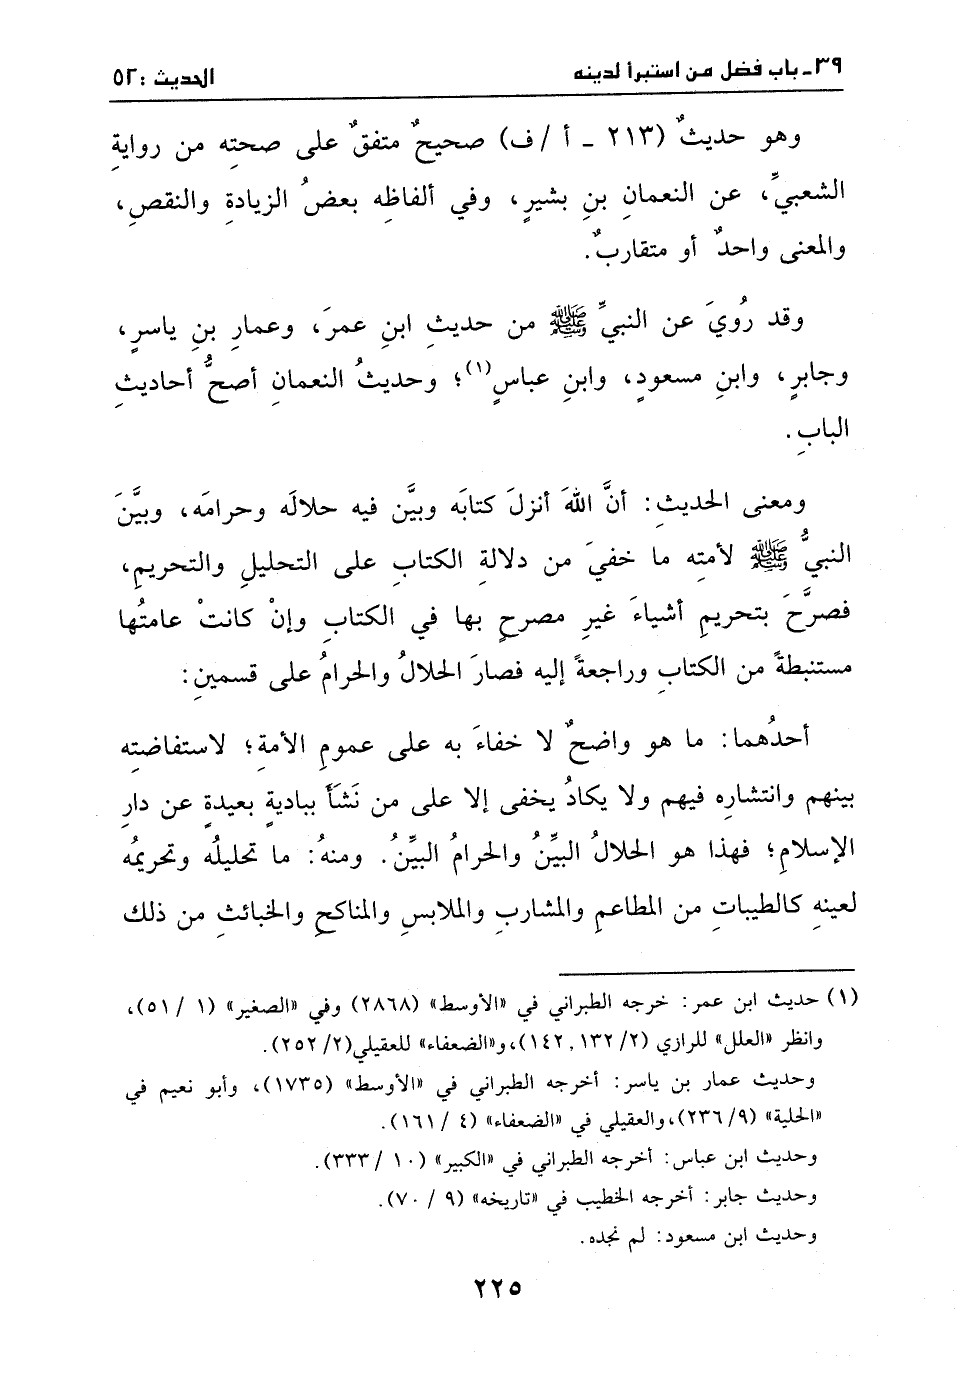 ٣٩ـ باب فضل من استبرأ لدينه الحديث : ٥٢
وهو حديثٌ (٢١٣ ـ أ / ف) صحيحٌ متفقٌ على صحتِه من روايةِ
الشعبيِّ، عن النعمانِ بنِ بشيرٍ، وفي ألفاظِه بعضُ الزيادةِ والنقصِ،
والمعنى واحدٌ أو متقاربٌ.
وقد رُويَ عن النبيِّ ﷺ من حديثِ ابنِ عمرَ، وعمارِ بنِ ياسرٍ،
وجابرٍ، وابنِ مسعودٍ، وابنِ عباسٍ(١)؛ وحديثُ النعمان أصحُّ أحاديثِ
البابِ.
ومعنى الحديثِ: أنَّ اللهَ أنزلَ كتابَه وبيَّن فيه حلالَه وحرامَه، وبيَّنَ
النبيُّ ﷺ لأمتِه ما خفيَ من دلالةِ الكتابِ على التحليلِ والتحريمِ،
فصرَّحَ بتحريمِ أشياءَ غيرِ مصرحٍ بها في الكتابِ وإنْ كانتْ عامتُها
مستنبطةً من الكتابِ وراجعةً إليه فصارَ الحلالُ والحرامُ على قسمينِ:
أحدُهما: ما هو واضحٌ لا خفاءَ به على عمومِ الأمةِ؛ لاستفاضتِه
بينهم وانتشارِه فيهم ولا يكادُ يخفى إلا على من نَشَأَ بباديةٍ بعيدةٍ عن دارِ
الإسلامِ؛ فهذا هو الحلالُ البيِّنُ والحرامُ البيِّنُ. ومنهُ: ما تحليلُه وتحريمُه
لعينِهِ كالطيباتِ من المطاعمِ والمشاربِ والملابسِ والمناكحِ والخبائثِ من ذلك
(١) حديث ابن عمر: خرجه الطبراني في «الأوسط» (٢٨٦٨) وفي «الصغير» (١ / ٥١)،
وانظر «العلل» للرازي (٢/ ١٣٢, ١٤٢)،و«الضعفاء» للعقيلي(٢/ ٢٥٢).
وحديث عمار بن ياسر: أخرجه الطبراني في «الأوسط» (١٧٣٥)، وأبو نعيم في
«الحلية» (٩/ ٢٣٦)،والعقيلي في «الضعفاء» (٤ / ١٦١).
وحديث ابن عباس: أخرجه الطبراني في «الكبير» (١٠ / ٣٣٣).
وحديث جابر: أخرجه الخطيب في «تاريخه» (٩ / ٧٠).
وحديث ابن مسعود: لم نجده.
٢٢٥